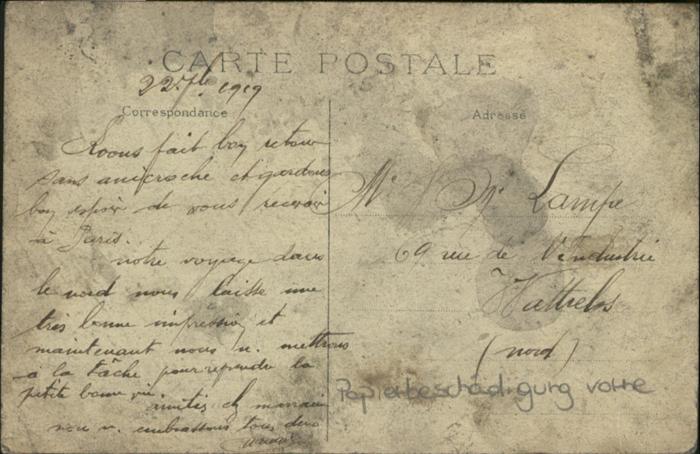 CARTE POSTALE
22 7bre 1919
Correspondance
Adresse
fait bon retour
sans anicroche et gardons
bon espoir de vous recevoir
à Paris.
notre voyage dans
le nord nous laisse une
très bonne impression et
maintenant nous n. mettrons
à la tâche pour reprendre la
petite bonne vie.
nou v. embrassons tous deux
Mr Lampe
69 rue de l'industrie
Wattrelos
(nord)
Papierbeschädigung vorne